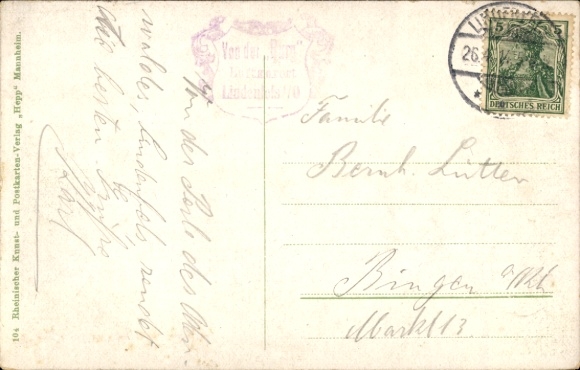 Von der Perle des Oden-
waldes, Lindenfels sendet
die besten Grüße
Karl
Von der "Burg"
Lindenfels i/O
Familie
Bernh. Lutter
Bingen a/Rh.
Markt 13
26.
5 5
DEUTSCHES REICH
104 Rheinischer Kunst- und Postkarten-Verlag „Hepp" Mannheim.